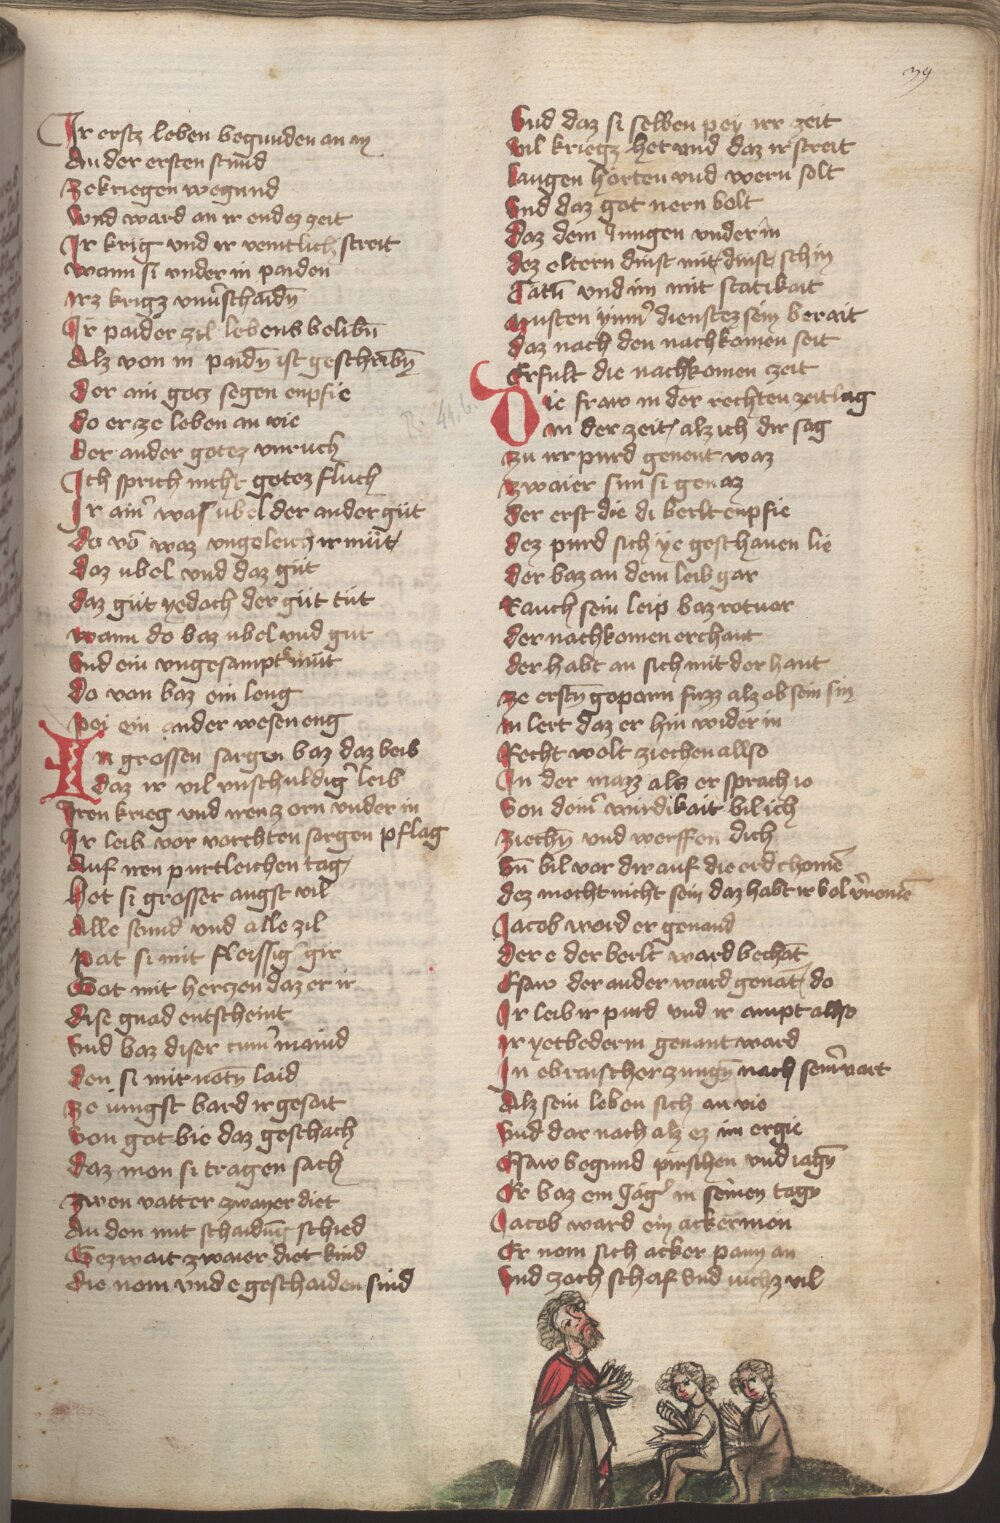 39
Ir erstz leben begunden an in
An der ersten stund
Ze kriegen wegund
Vnd ward an ir endez zeit
Ir krig vnd ir veintlich streit
wann si vnder in paiden
irz krigz vnuerschaidn̄
Ir paider zil lebens belibn̄
Alz von in paidn̄ ist geschribn̄
Der ain gotz segen enpfie
do er ze leben an vie
Der ander gotez vnruch
Ich sprich nicht gotez fluch
Ir ainˀ was vbel der ander gůt
do vō waz vngeleich ir můt
daz ubel vnd daz gůt
daz gůt yedoch der gůt tůt
wann do baz ubel vnd gůt
Vnd ein vngesampt můt
do von baz ein leng
pei ein ander wesen eng
In grossen sargen baz daz beib
daz ir vil vnschuldigˀ leib
Iren krieg vnd iren zorn vnder in
Ir leib vor vorchten sorgen pflag
Auf iren purtleichen tag
Het si grosser angst vil
Alle stund vnd alle zil
Pat si mit fleissigˀ gir
Got mit herczen daz er ir
dise gnad entscheint
Vnd baz diser cumˀ maind
den si mit nōtn̄ laid
ze iungst bard ir gesait
von got bie daz geschach
daz mon si tragen sach
zwen vatter zwayer diet
An den mit schaidūg schied
Gezwait zwaier diet kind
die nom vnd e geschaiden sind
Vnd daz si selben pey irr zeit
vil kriegz het vnd daz ir streit
langen horten vnd wern solt
Vnd daz got nern bolt
daz dem Iungen vnder in
dez eltern dinst mit dinst schin
Tatn̄ vnd im mit statikait
musten ymmˀ dienstez sein berait
daz nach den nachkomen seit
Erfult die nachkomen zeit
Die fraw in der rechten zeit lag
in der zeit alz ich dir sag
zu irr purd genent waz
zwaier sun si genaz
der erst die di berlt enpfie
dez purd sich ye geschauen lie
der baz an dem leib gar
Rauch sein leip baz rotuar
der nachkomen erchant
der habt an sich mit der hant
ze erstn̄ goporn fuzz alz ob sein sin
in lert daz er hin wider in
Recht wolt ziechen allso
In der mazz als er sprach io
von deinˀ wirdikait bil ich
ziechn̄ vnd werffen dich
vn̄ bil vor dir auf die erd chomē
dez mocht nicht sein daz habt ir bol vˀnomē
Iacob word er genand
der e der berlt ward bechāt
Esaw der ander ward genāt do
Ir leib ir purd vnd ir ampt allso
ir yetbederm genant ward
In ebraischer zungn̄ nach seinˀ vart
Alz sein leben sich an vie
Vnd dar nach alz ez im ergie
Esaw begund pirschen vnd iagn̄
Er baz ein Jagˀ in seinen tagn̄
Iacob ward ein ackermon
Er nom sich acker pawn an
Vnd zoch schof vnd vichz vil